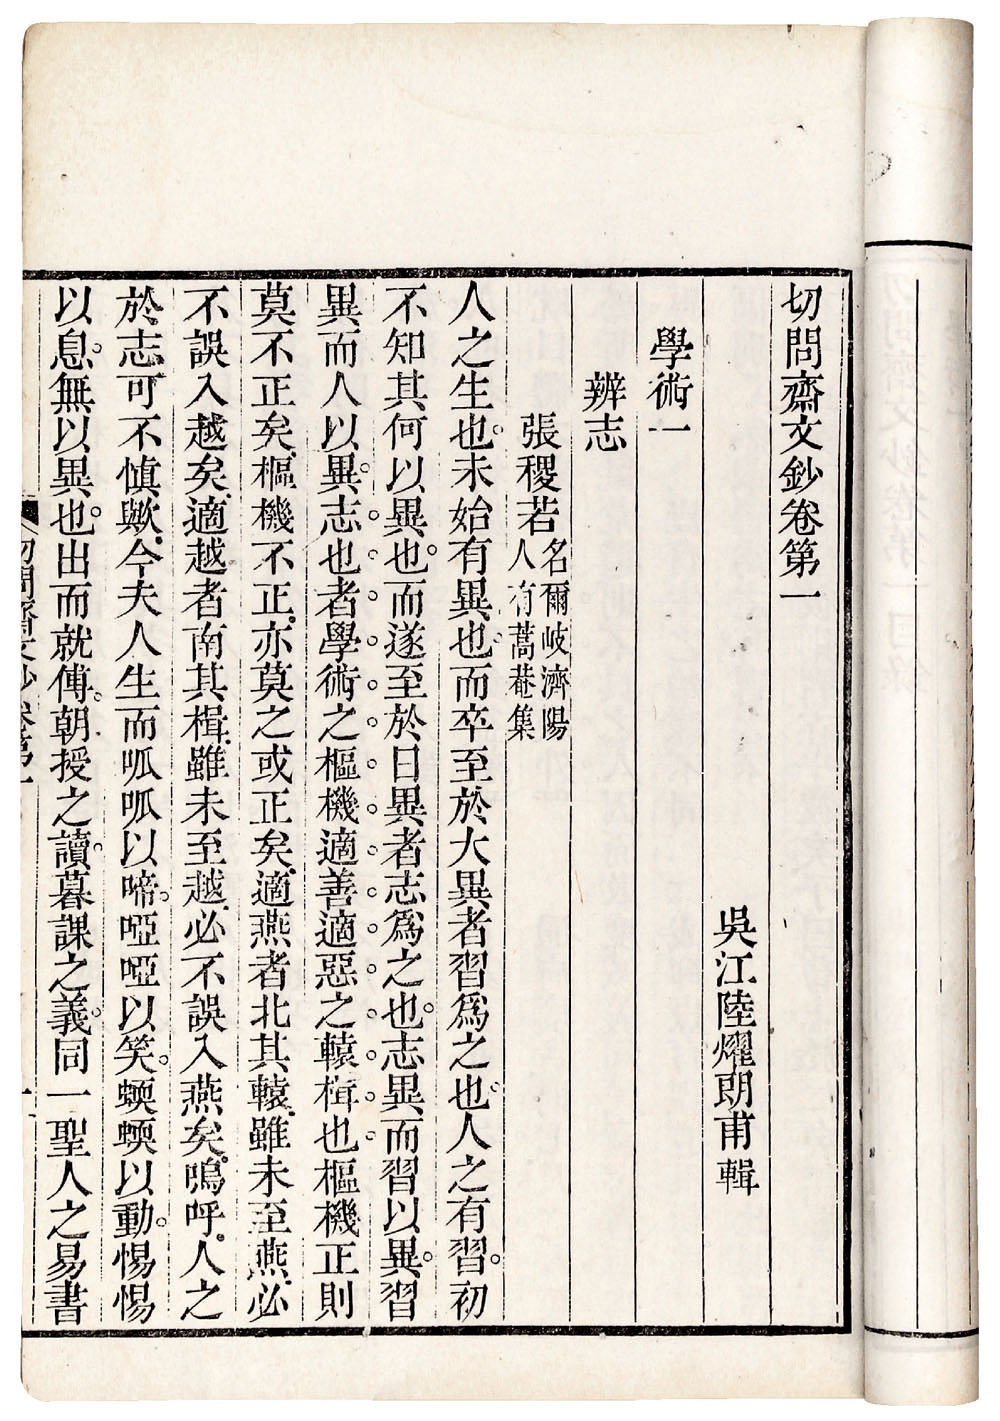 切問齋文鈔卷第一
吳江陸燿朗甫輯
學術一
辨志
張稷若名爾岐濟陽人有蒿菴集
人之生也未始有異也而卒至於大異者習爲之也人之有習初
不知其何以異也而遂至於日異者志爲之也志異而習以異習
異而人以異志也者學術之樞機適善適惡之轅楫也樞機正則
莫不正矣樞機不正亦莫之或正矣適燕者北其轅雖未至燕必
不誤入越矣適越者南其楫雖未至越必不誤入燕矣嗚呼人之
於志可不慎歟今夫人生而呱呱以啼啞啞以笑蝡蝡以動惕惕
以息無以異也出而就傅朝授之讀暮課之義同一聖人之易書
切問齋文鈔卷第一
一